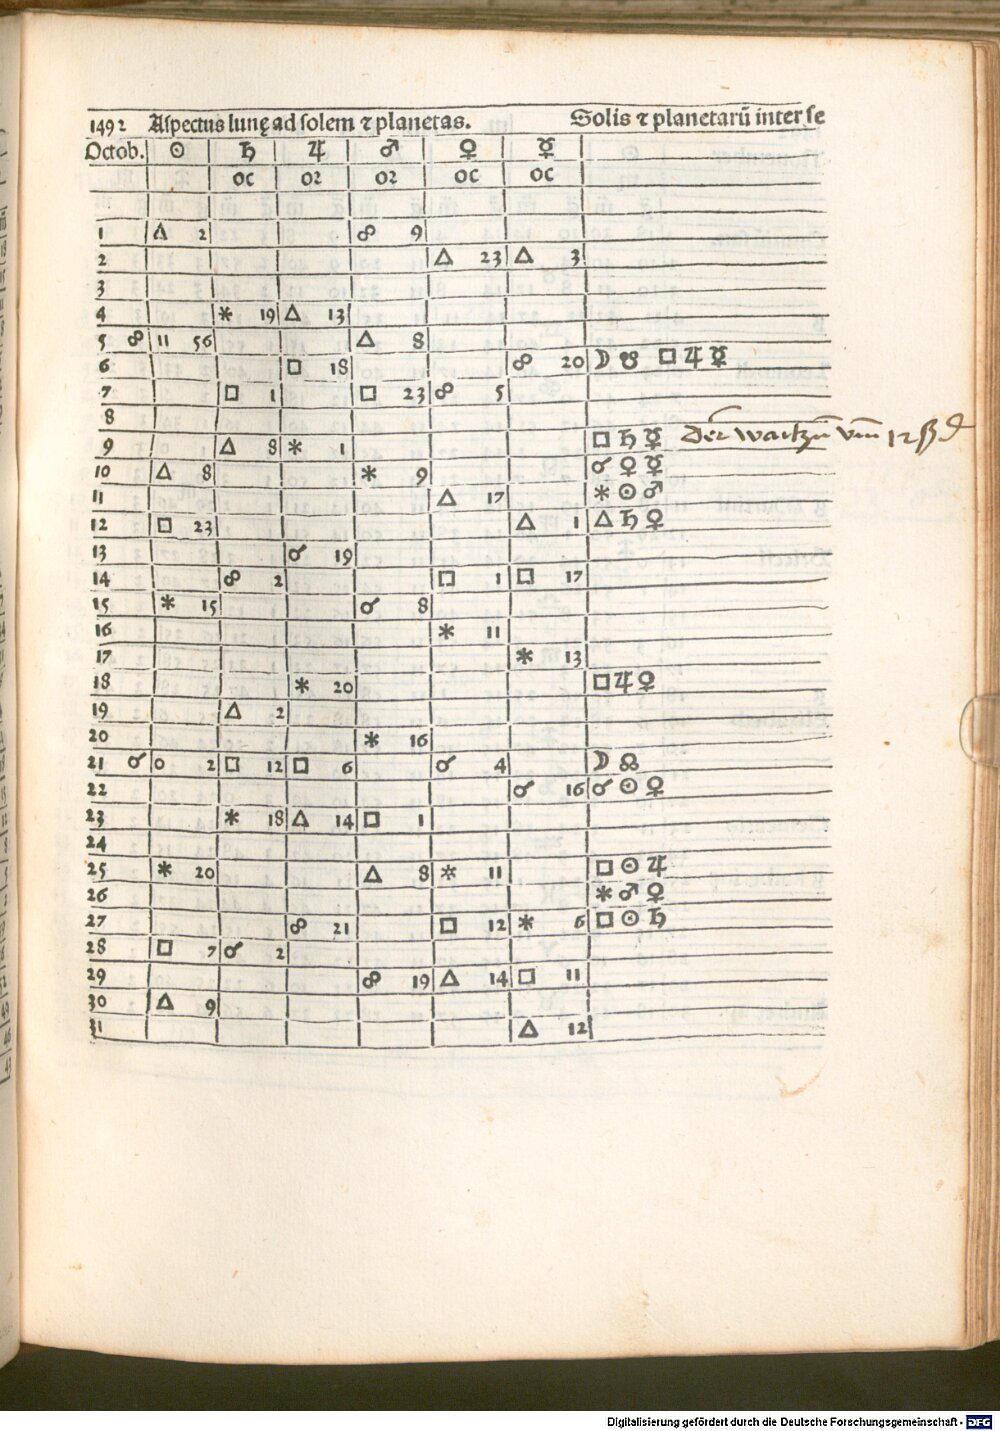 1492 Aspectus lunę ad solem ⁊ planetas. Solis ⁊ planetarū inter se
Octob. ☉ ♄ ♃ ♂ ♀ ☿
oc or or oc oc
1 △ 2 ☍ 9
2 △ 23 △ 3
3
4 ⚹ 19 △ 13
5 ☍ 11 56 △ 8
6 □ 18 ☍ 20 ☽ ☋ □ ♃ ☿
7 □ 1 □ 23 ☍ 5
8
9 △ 8 ⚹ 1 □ ♄ ☿ der waitzn vm 12 ß d
10 △ 8 ⚹ 9 ☌ ♀ ☿
11 △ 17 ⚹ ☉ ♂
12 □ 23 △ 1 △ ♄ ♀
13 ☌ 19
14 ☍ 2 □ 1 □ 17
15 ⚹ 15 ☌ 8
16 ⚹ 11
17 ⚹ 13
18 ⚹ 20 □ ♃ ♀
19 △ 2
20 ⚹ 16
21 ☌ 0 2 □ 12 □ 6 ☌ 4 ☽ ☊
22 ☌ 16 ☌ ☉ ♀
23 ⚹ 18 △ 14 □ 1
24
25 ⚹ 20 △ 8 ⚹ 11 □ ☉ ♃
26 ⚹ ♂ ♀
27 ☍ 21 □ 12 ⚹ 6 □ ☉ ♄
28 □ 7 ☌ 2
29 ☍ 19 △ 14 □ 11
30 △ 9
31 △ 12
Digitalisierung gefördert durch die Deutsche Forschungsgemeinschaft - DFG